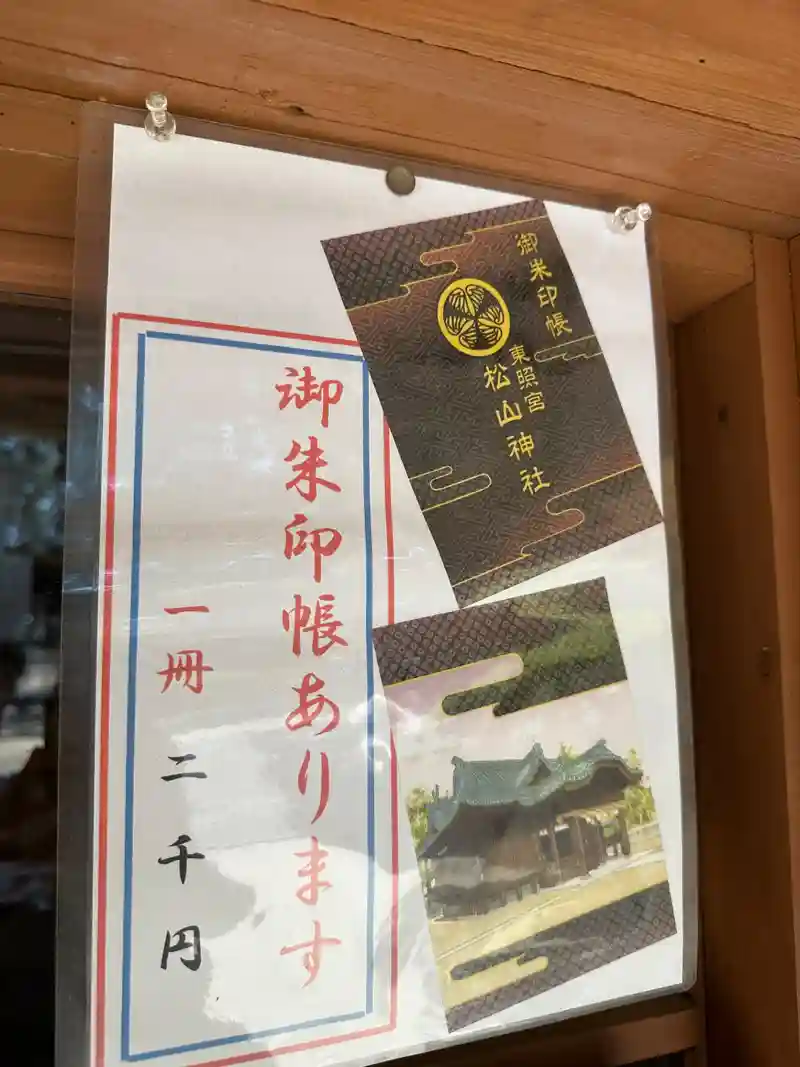 御朱印帳
東照宮
松山神社
御朱印帳あります
一冊 二千円